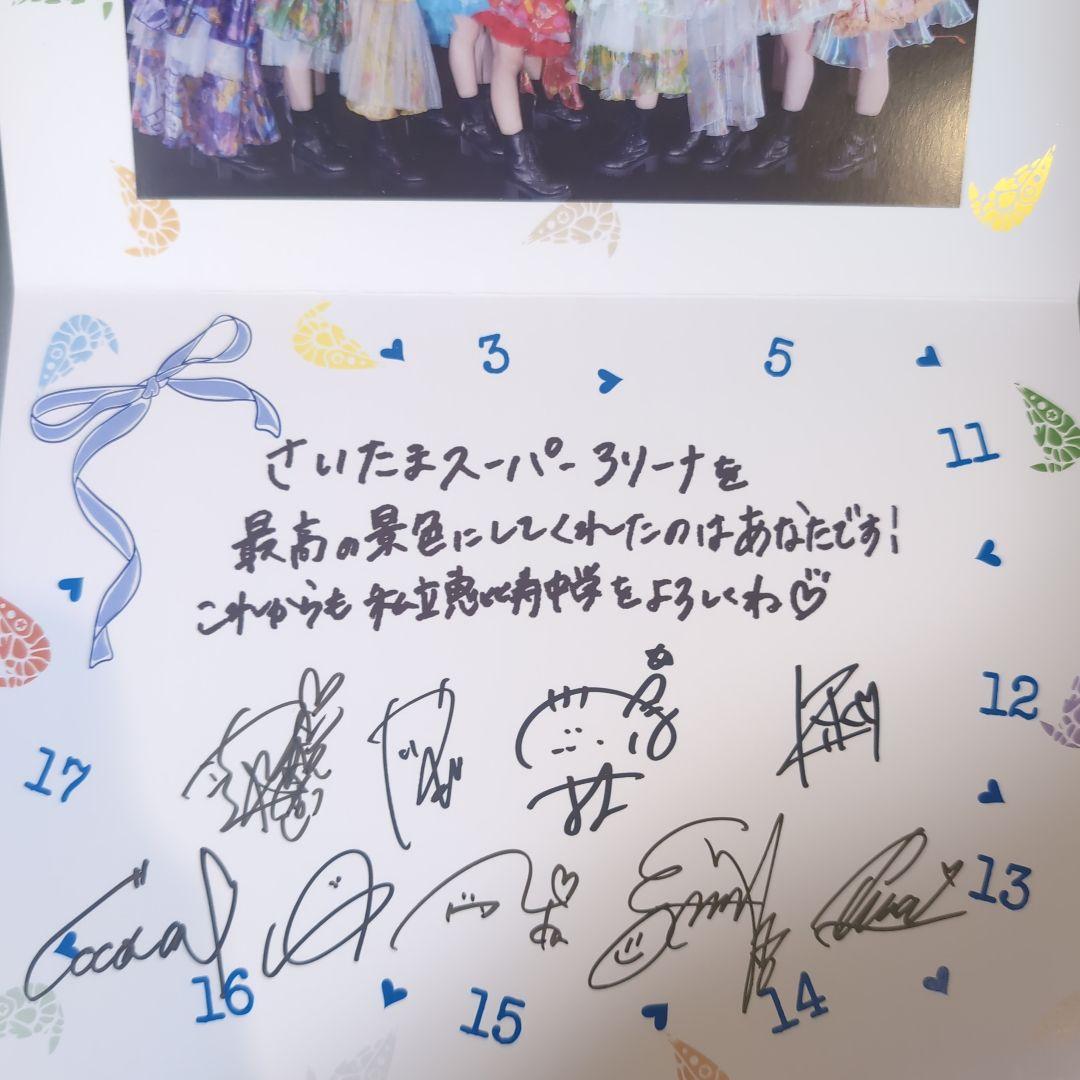 3
5
11
さいたまスーパーアリーナを
最高の景色にしてくれたのはあなたです!
これからも私立恵比寿中学をよろしくね♡
12
17
13
Cocona
Emma
16
15
14